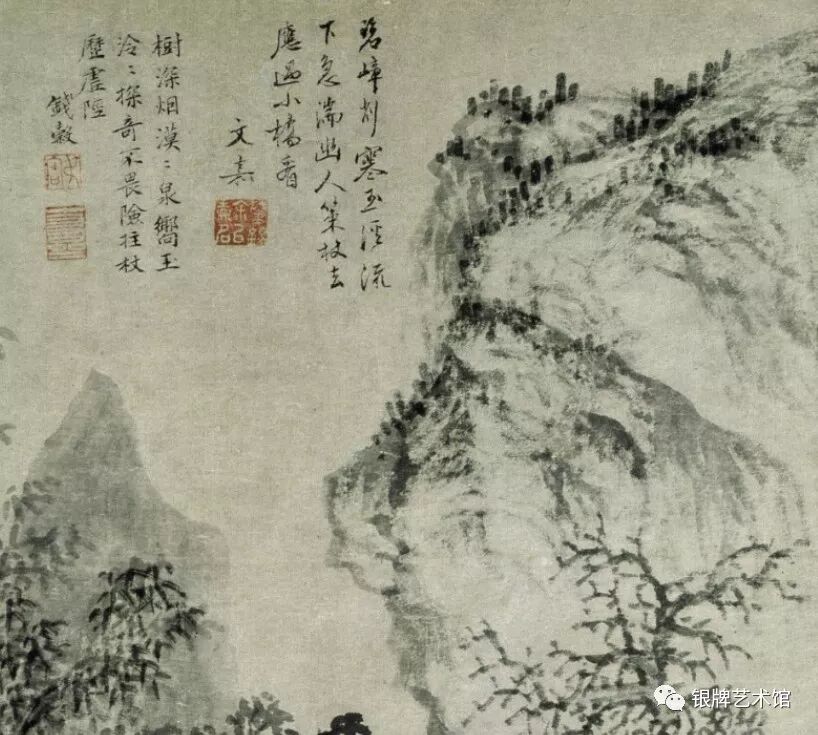 碧嶂削寒玉溪流
下急湍幽人策杖去
應過小橋看
文嘉
樹深烟漠〻泉嚮玉
泠〻探奇不畏險拄杖
歷虛陘
錢穀
银牌艺术馆